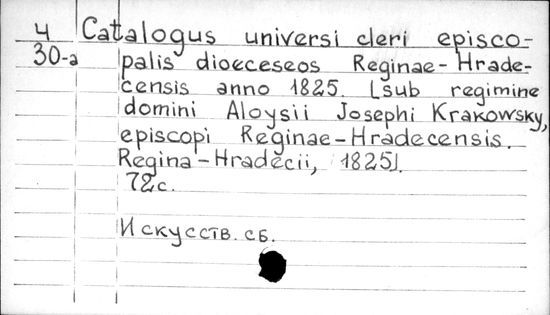 4 Catalogus universi cleri episco-
30-a palis dioeceseos Reginae-Hrade-
censis anno 1825. [sub regimine
domini Aloysii Josephi Krakowsky,
episcopi Reginae-Hradecensis.
Regina-Hradecii, 1825].
72с.
Искусств. сб.